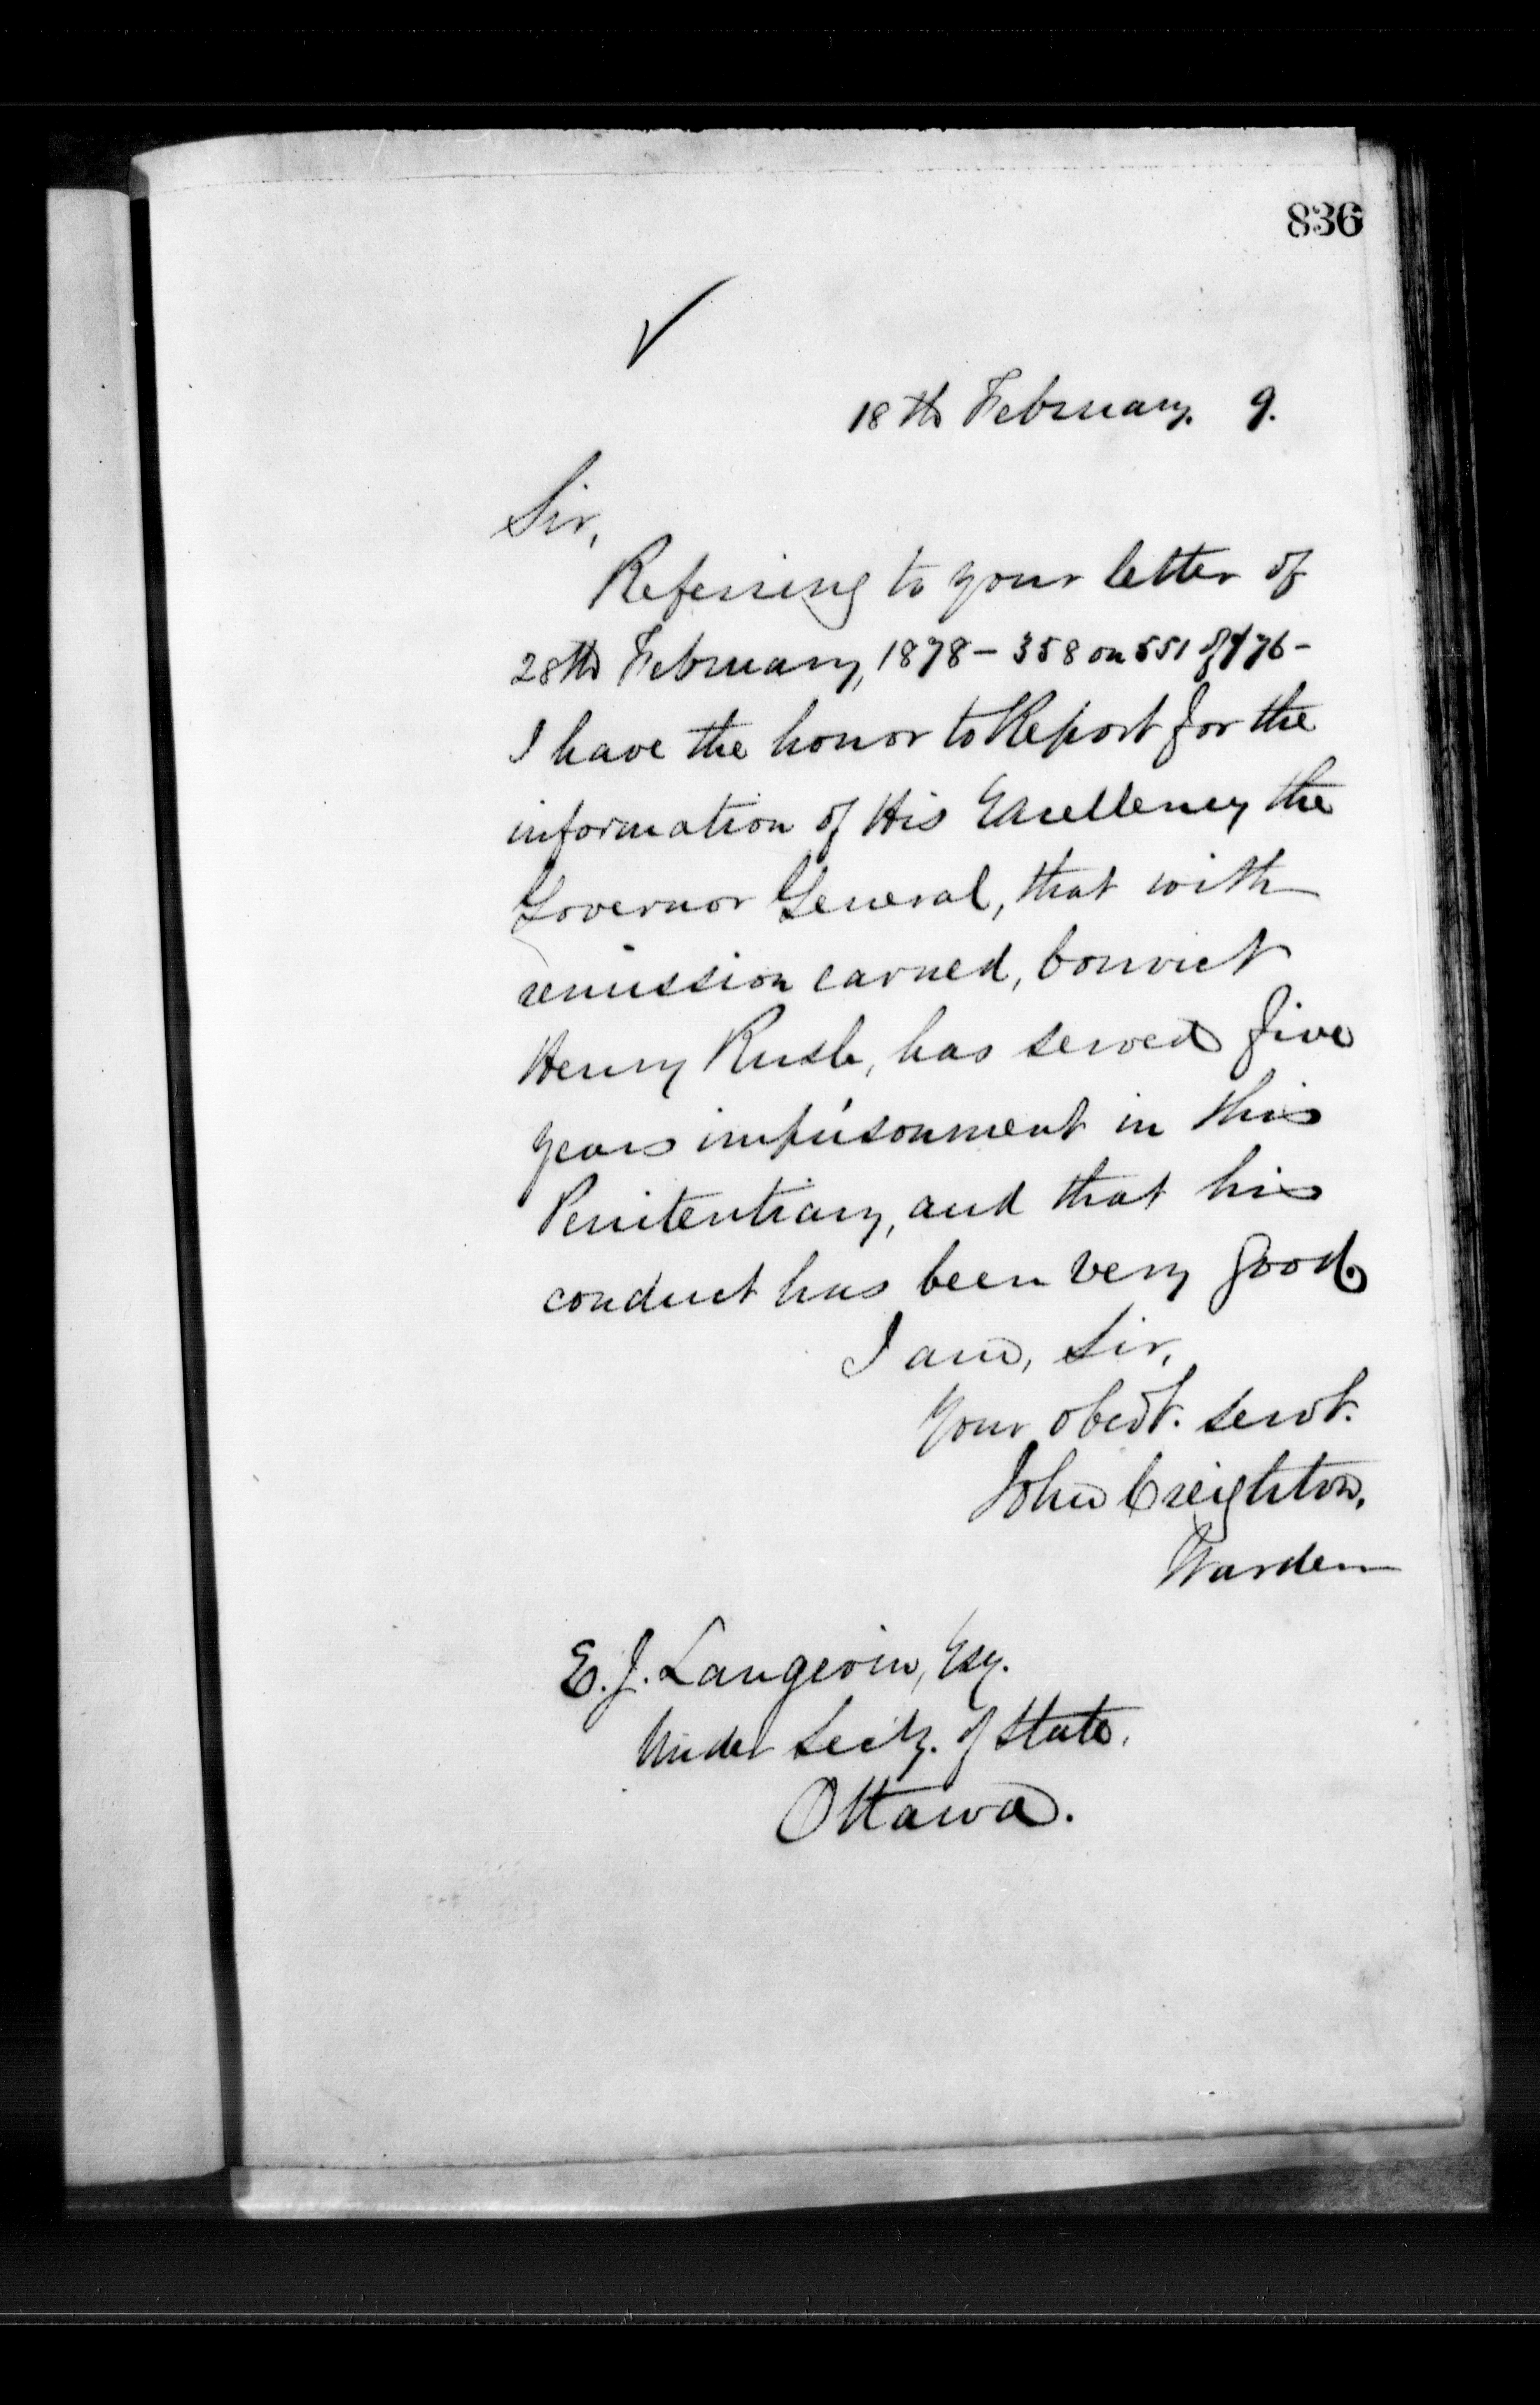 836
✓
18th February. 9.
Sir,
Referring to your letter of
28th February, 1878 – 358 on 551 of '76 –
I have the honor to Report for the
information of His Excellency the
Governor General, that with
remission earned, Convict
Henry Rush, has served five
years imprisonment in this
Penitentiary, and that his
conduct has been very good
I am, Sir,
Your obedt. servt.
John Creighton,
Warden
E. J. Langevin, Esq.
Under Secty. of State.
Ottawa.